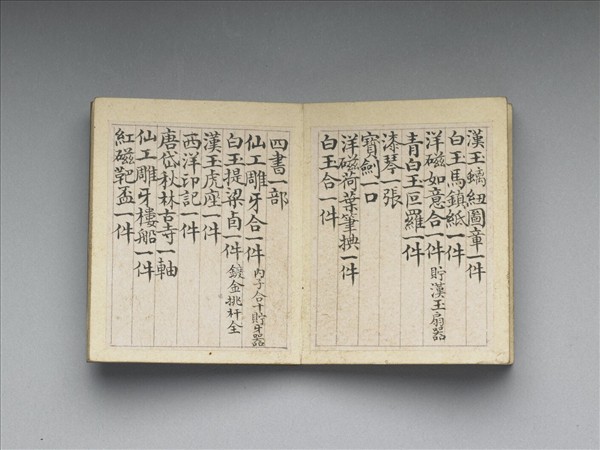 漢玉螭紐圖章一件
白玉馬鎮紙一件
洋磁如意合一件 貯漢玉扇器
青白玉叵羅一件
漆琴一張
寶劍一口
洋磁荷葉筆掭一件
白玉合一件
四書一部
仙工雕牙合一件 內子合十貯牙器
白玉提梁卣一件 鍍金挑杆全
漢玉虎座一件
西洋印記一件
唐岱秋林古寺一軸
仙工雕牙樓船一件
紅磁靶盃一件